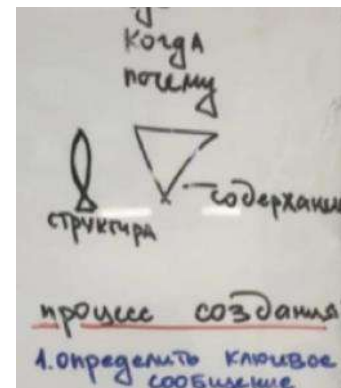 когда
почему
содержани
структура
процесс создания
1. определить ключевое
сообщение